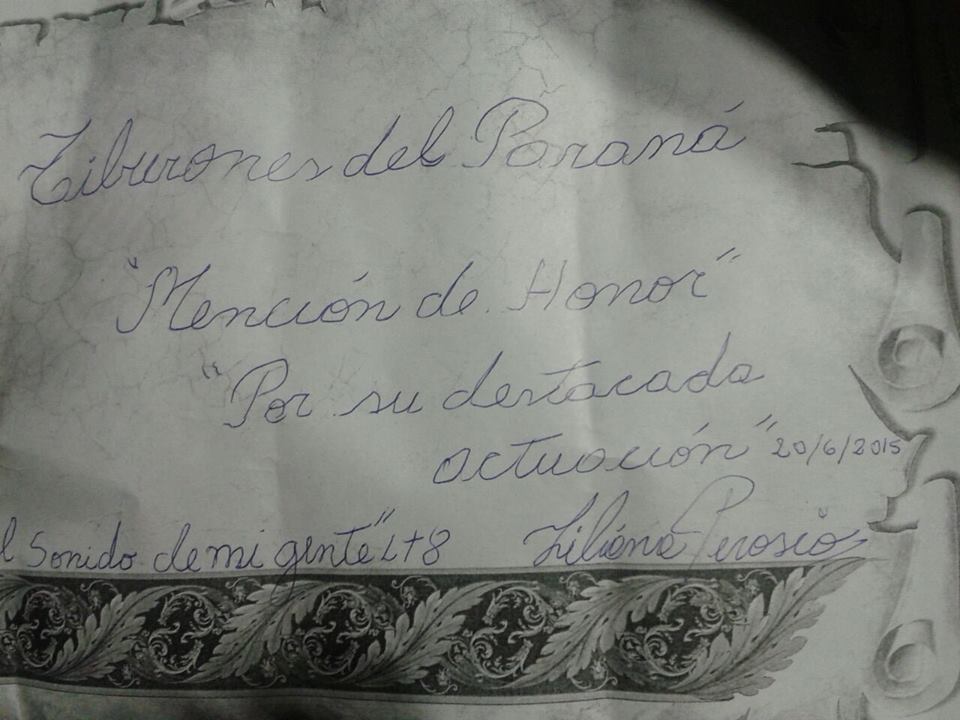 Tiburones del Paraná
"Mención de Honor"
"Por su destacada
actuación" 20/6/2015
l Sonido de mi gente" Lt8 Liliana Perosio